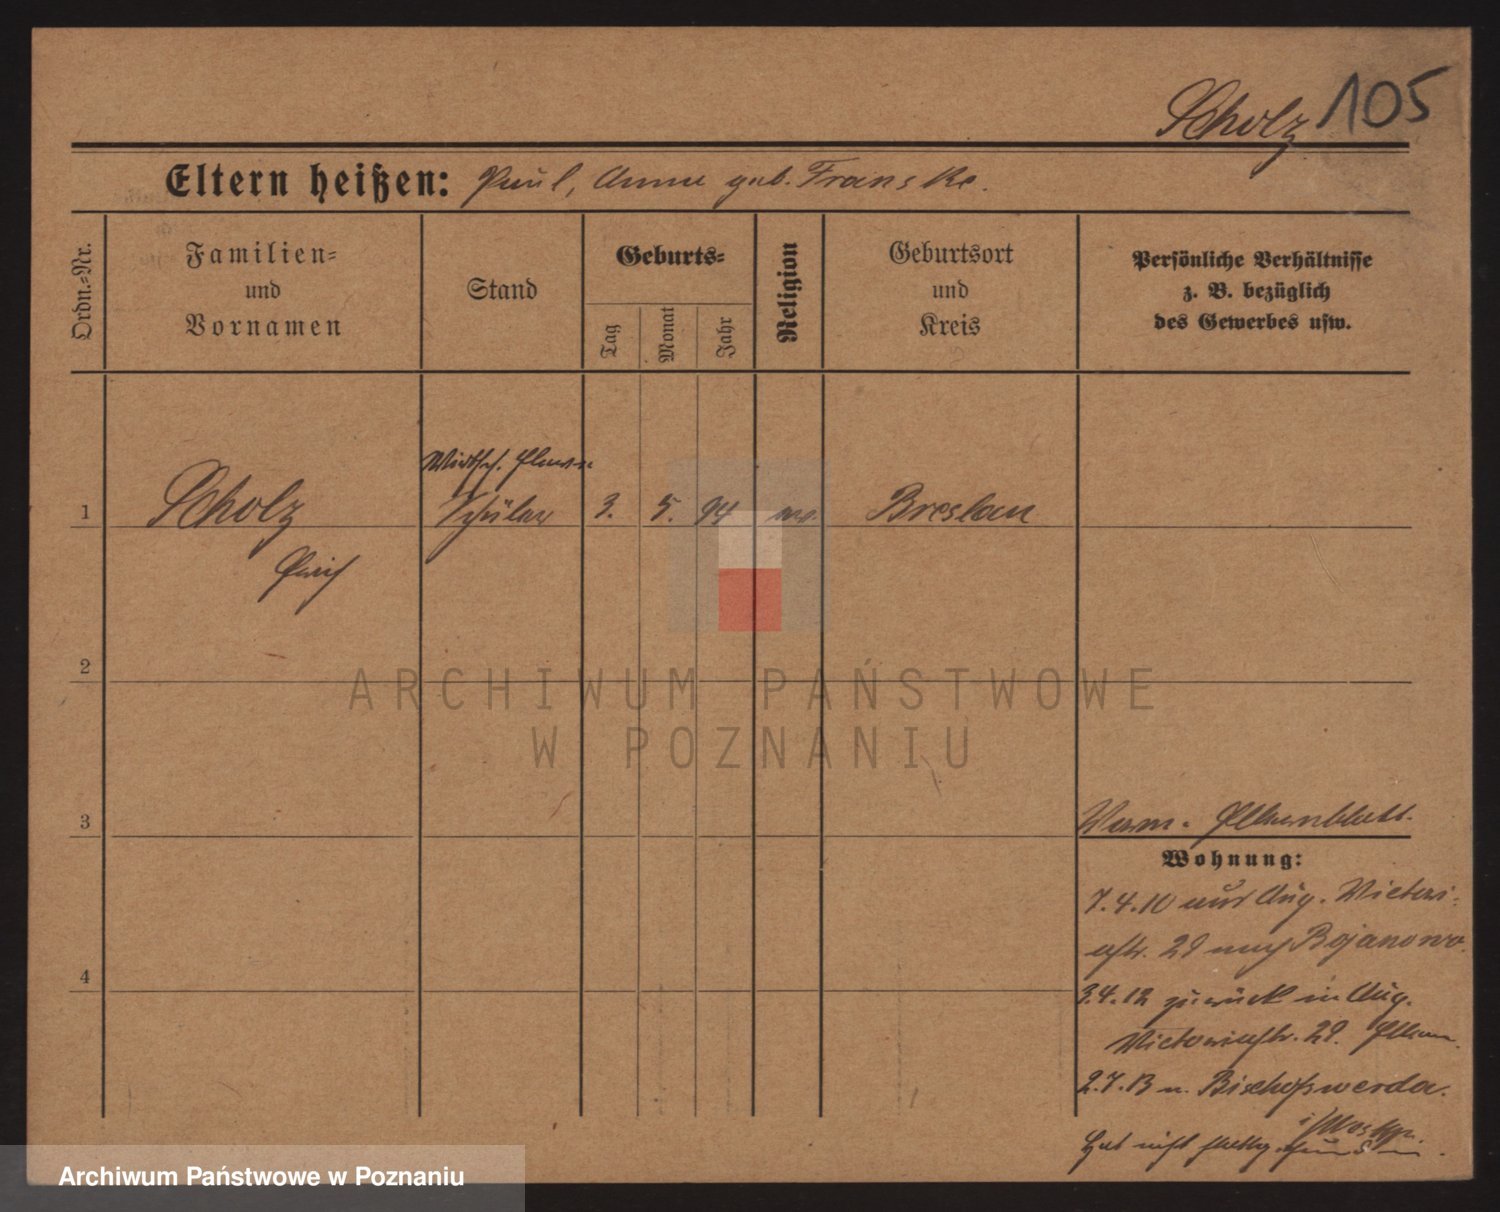 Scholz 105
Eltern heißen: Paul, Anna geb. Franske.
Ordn.-Nr.
Familien-
und
Vornamen
Stand
Geburts-
Tag
Monat
Jahr
Religion
Geburtsort
und
Kreis
Persönliche Verhältnisse
z. B. bezüglich
des Gewerbes usw.
Wirtsch.
1 Scholz Schüler 3. 5. 94 Breslau
2
3
4
ARCHIWUM PAŃSTWOWE
W POZNANIU
Verm. Elternblatt.
Wohnung:
7.4.10 aus Aug. Victori-
astr. 29 nach Bojanowo.
3.4.12 zurück in Aug.
Victoriastr. 29. Eltern.
2.7.13 n. Bischofswerda.
Hat nicht
Archiwum Państwowe w Poznaniu